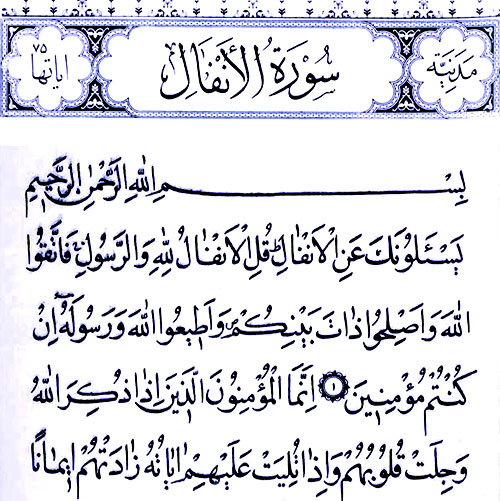 مَدَنِيَّة سُورَةُ الْأَنْفَالِ اٰيَاتُهَا ٧٥
بِسْمِ اللّٰهِ الرَّحْمٰنِ الرَّحِيمِ
يَسْـَٔلُونَكَ عَنِ الْاَنْفَالِۜ قُلِ الْاَنْفَالُ لِلّٰهِ وَالرَّسُولِۚ فَاتَّقُوا
اللّٰهَ وَاَصْلِحُوا ذَاتَ بَيْنِكُمْۖ وَاَطِيعُوا اللّٰهَ وَرَسُولَهُٓ اِنْ
كُنْتُمْ مُؤْمِنِينَ ﴿١﴾ اِنَّمَا الْمُؤْمِنُونَ الَّذِينَ اِذَا ذُكِرَ اللّٰهُ
وَجِلَتْ قُلُوبُهُمْ وَاِذَا تُلِيَتْ عَلَيْهِمْ اٰيَاتُهُ زَادَتْهُمْ اِيمَانًا